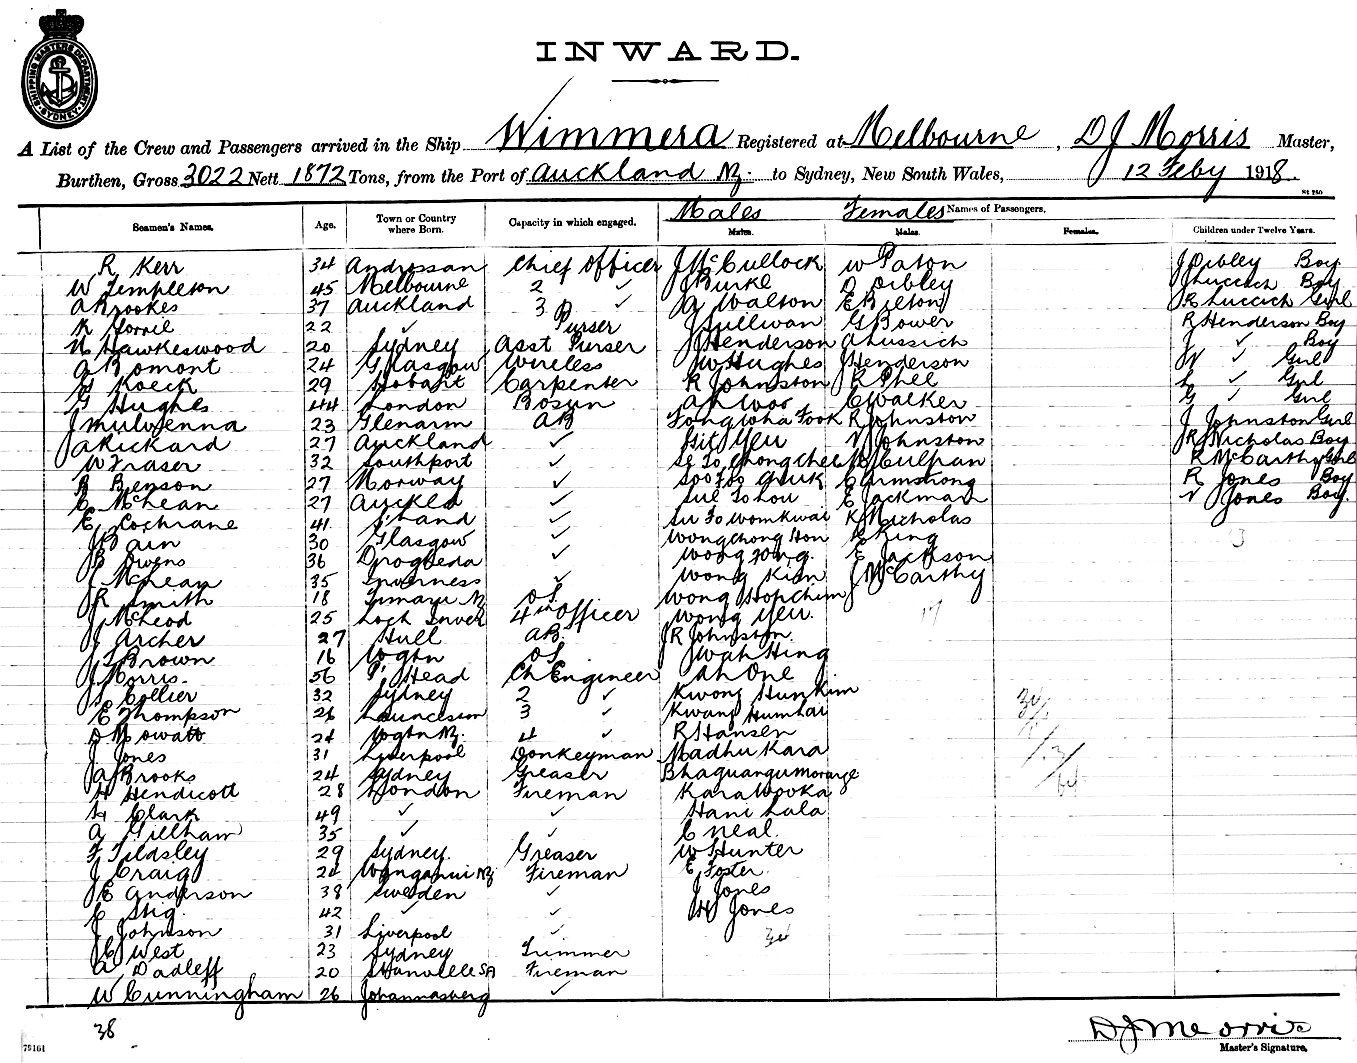 SHIPPING MASTERS DEPARTMENT SYDNEY
INWARD.
A List of the Crew and Passengers arrived in the Ship Wimmera Registered at Melbourne, D J Morris Master,
Burthen, Gross 3022 Nett 1872 Tons, from the Port of Auckland NZ. to Sydney, New South Wales, 12 Feby 1918
Seamen's Names. Age. Town or Country where Born. Capacity in which engaged. Males Females Names of Passengers.
Males. Males. Females. Children under Twelve Years.
R Kerr 34 Ardrossan Chief Officer J McCullock W Paton J Dibley Boy
W Templeton 45 Melbourne 2 ✓ J Burke D Dibley J Luccich Boy
A Brookes 37 Auckland 3 ✓ A Walton E Bielton R Luccich Girl
22 ✓ Purser J Sullivan G Bower R Henderson Boy
N Hawkeswood 20 Sydney Asst Purser J Henderson A Lussich J ✓ Boy
A Bomont 24 Glasgow Wireless W Hughes J Henderson ✓ Girl
H Koeck 29 Hobart Carpenter R Johnston R Phel L ✓ Girl
G Hughes 44 London Bosun Ah Woo C Walker G ✓ Girl
J Mulvenna 23 Glenarm AB Fong Wha Fook R Johnston J Johnston Girl
J A Rickard 27 Auckland ✓ Sit Yeu V Johnston J R Nicholas Boy
W Fraser 32 Southport ✓ Chong Chee Culpan R McCarthy Girl
B Benson 27 Norway ✓ C Armstrong R Jones Boy
C McLean 27 Auckld ✓ Sue To Lou E Jackman V Jones Boy.
E Cochrane 41 S'land ✓ Su To Wom Kwai K Nicholas
J Bain 30 Glasgow ✓ Wong Chong Hon E King 13
J Owens 36 Drogheda ✓ Wong Fong. E Jackson
J McLean 35 Inverness ✓ Wong Kian J McCarthy
J R Smith 18 Timaru NZ OS Wong Hop Chim
J McLeod 25 Loch Inver 4th Officer Wong Yeu. 17
J Archer 27 Hull AB. J R Johnston.
J S Brown 16 Wgtn OS J Wah Hing
J Morris. 56 P. Head Ch Engineer Ah One
J S Collier 32 Sydney 2 ✓ Kwong Hun Kim
E Thompson 26 Launceston 3 ✓ Kwang Hum Hai
D Mowatt 24 Wgtn NZ. 4 ✓ R Hansen
J Jones 31 Liverpool Donkeyman Madhu Kara
J A Brooks 24 Sydney Greaser
H Hendicott 28 London Fireman Kara Wooka
H Clark 49 ✓ ✓ Hani Lala
A Gillham 35 ✓ ✓ C Neal.
F Tildsley 29 Sydney. Greaser W S Hunter
J Craig 24 Wanganui NZ Fireman E Foster
J E Anderson 38 Sweden ✓ J Jones
C Stig. 42 ✓ ✓ W Jones
J Johnson 31 Liverpool ✓ 34
J C West 23 Sydney Trimmer
A Dadleff 20 SA Fireman
W Cunningham 26 Johannasberg ✓
38
34
17
13
64
D J Morris
Master's Signature.
79161